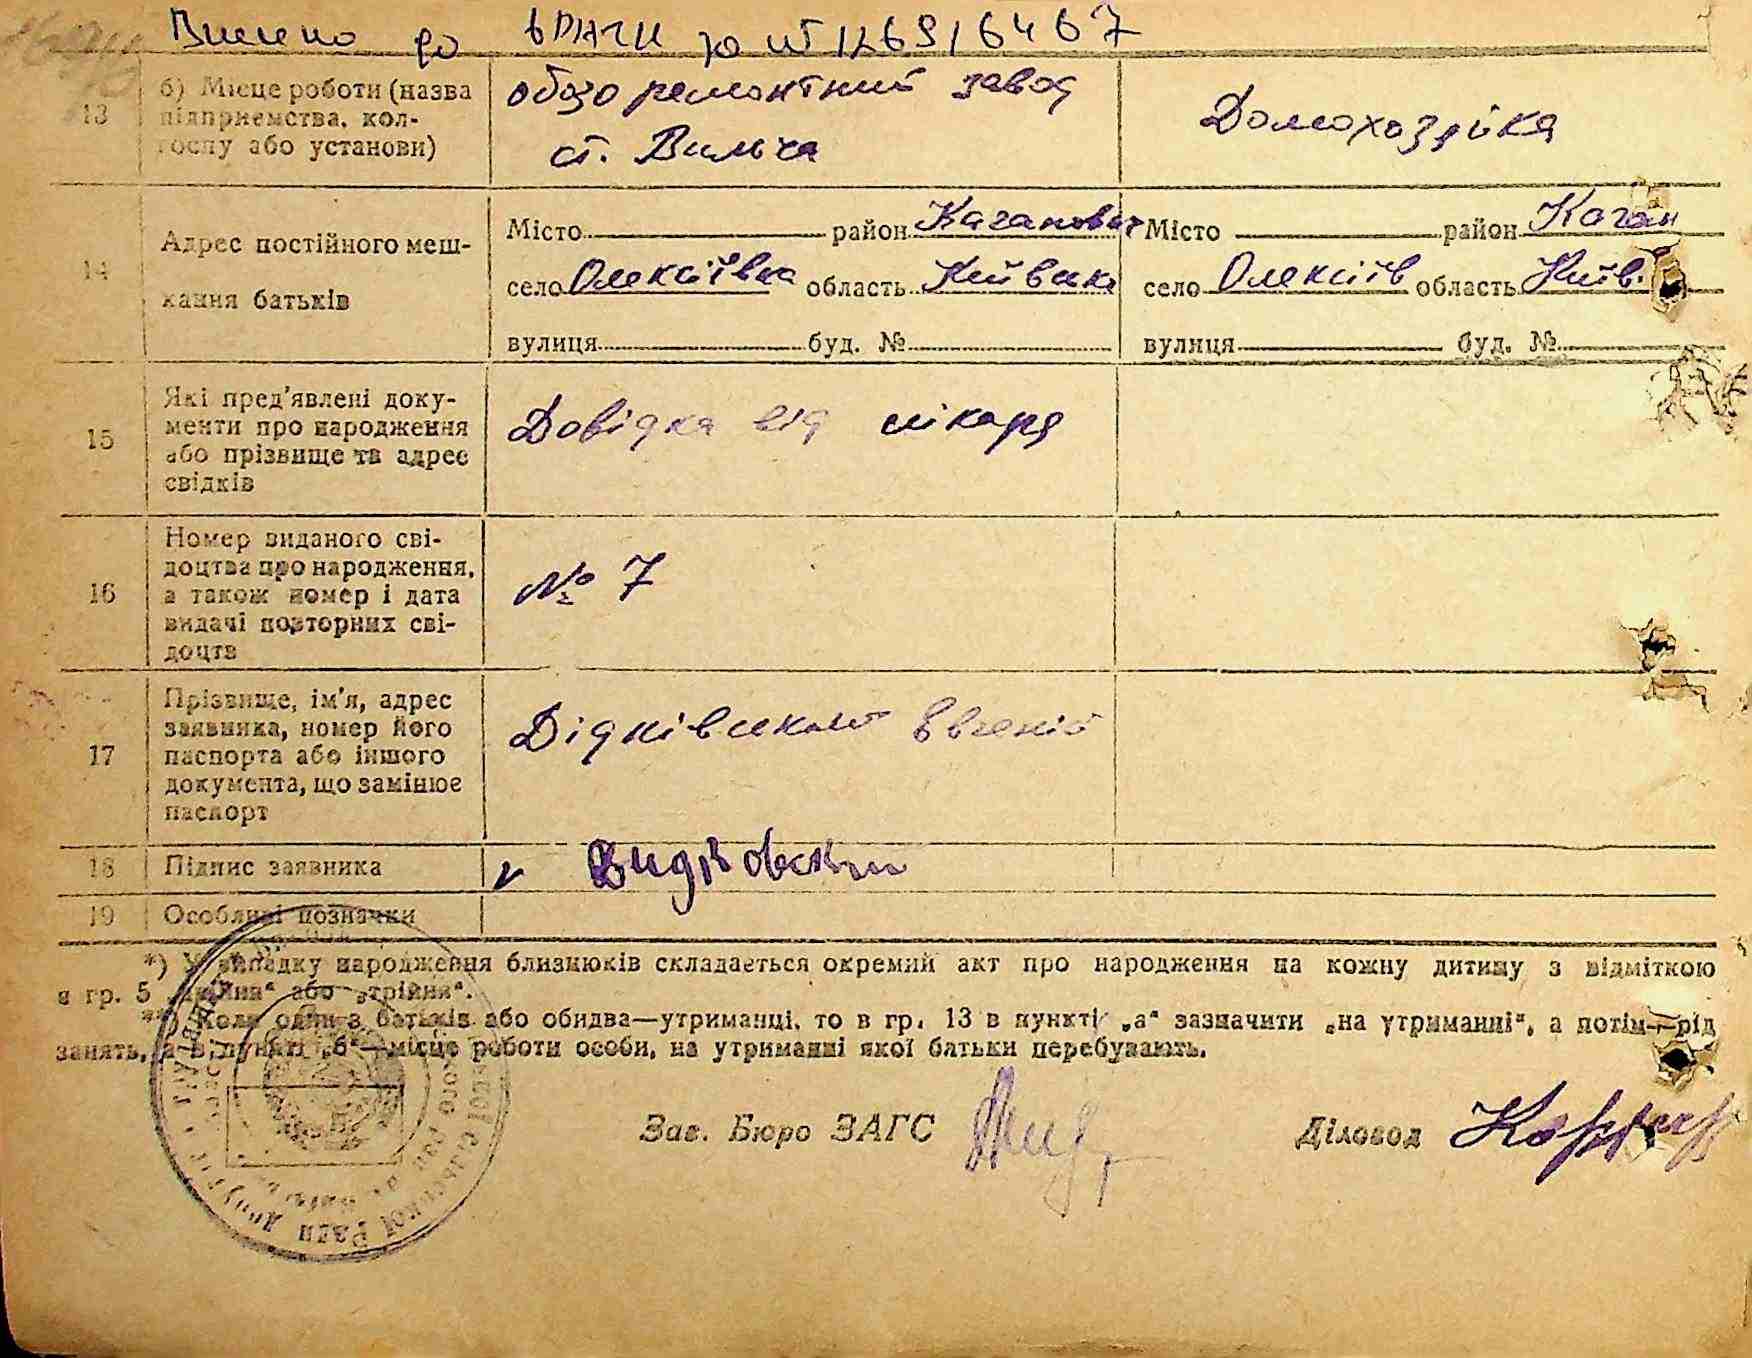 Внесено до ДРАЦГ за № 12696467
13 б) Місце роботи (назва підприємства, кол-
госпу або установи)
обозо ремонтний завод
ст. Вильча
Домохозяйка
14 Адрес постійного меш-
кання батьків
Місто район Каганович
село Олексіївка область Київська
вулиця буд. №
Місто район Каган
село Олексіїв область Київ.
вулиця буд. №
15 Які пред'явлені доку-
менти про народження
або прізвище та адрес
свідків
Довідка від лікаря
16 Номер виданого сві-
доцтва про народження,
а також номер і дата
видачі повторних сві-
доцтв
№ 7
17 Прізвище, ім'я, адрес
заявника, номер його
паспорта або іншого
документа, що замінює
паспорт
Дідківський Євгеній
18 Підпис заявника
19 Особливі позначки
*) У випадку народження близнюків складається окремий акт про народження на кожну дитину з відміткою
в гр. 5 „двійня“ або „трійня“.
**) Коли один з батьків або обидва—утриманці, то в гр. 13 в пункті „а“ зазначити „на утриманні“, а потім—рід
занять, а в пункті „б“—місце роботи особи, на утриманні якої батьки перебувають.
Зав. Бюро ЗАГС
Діловод